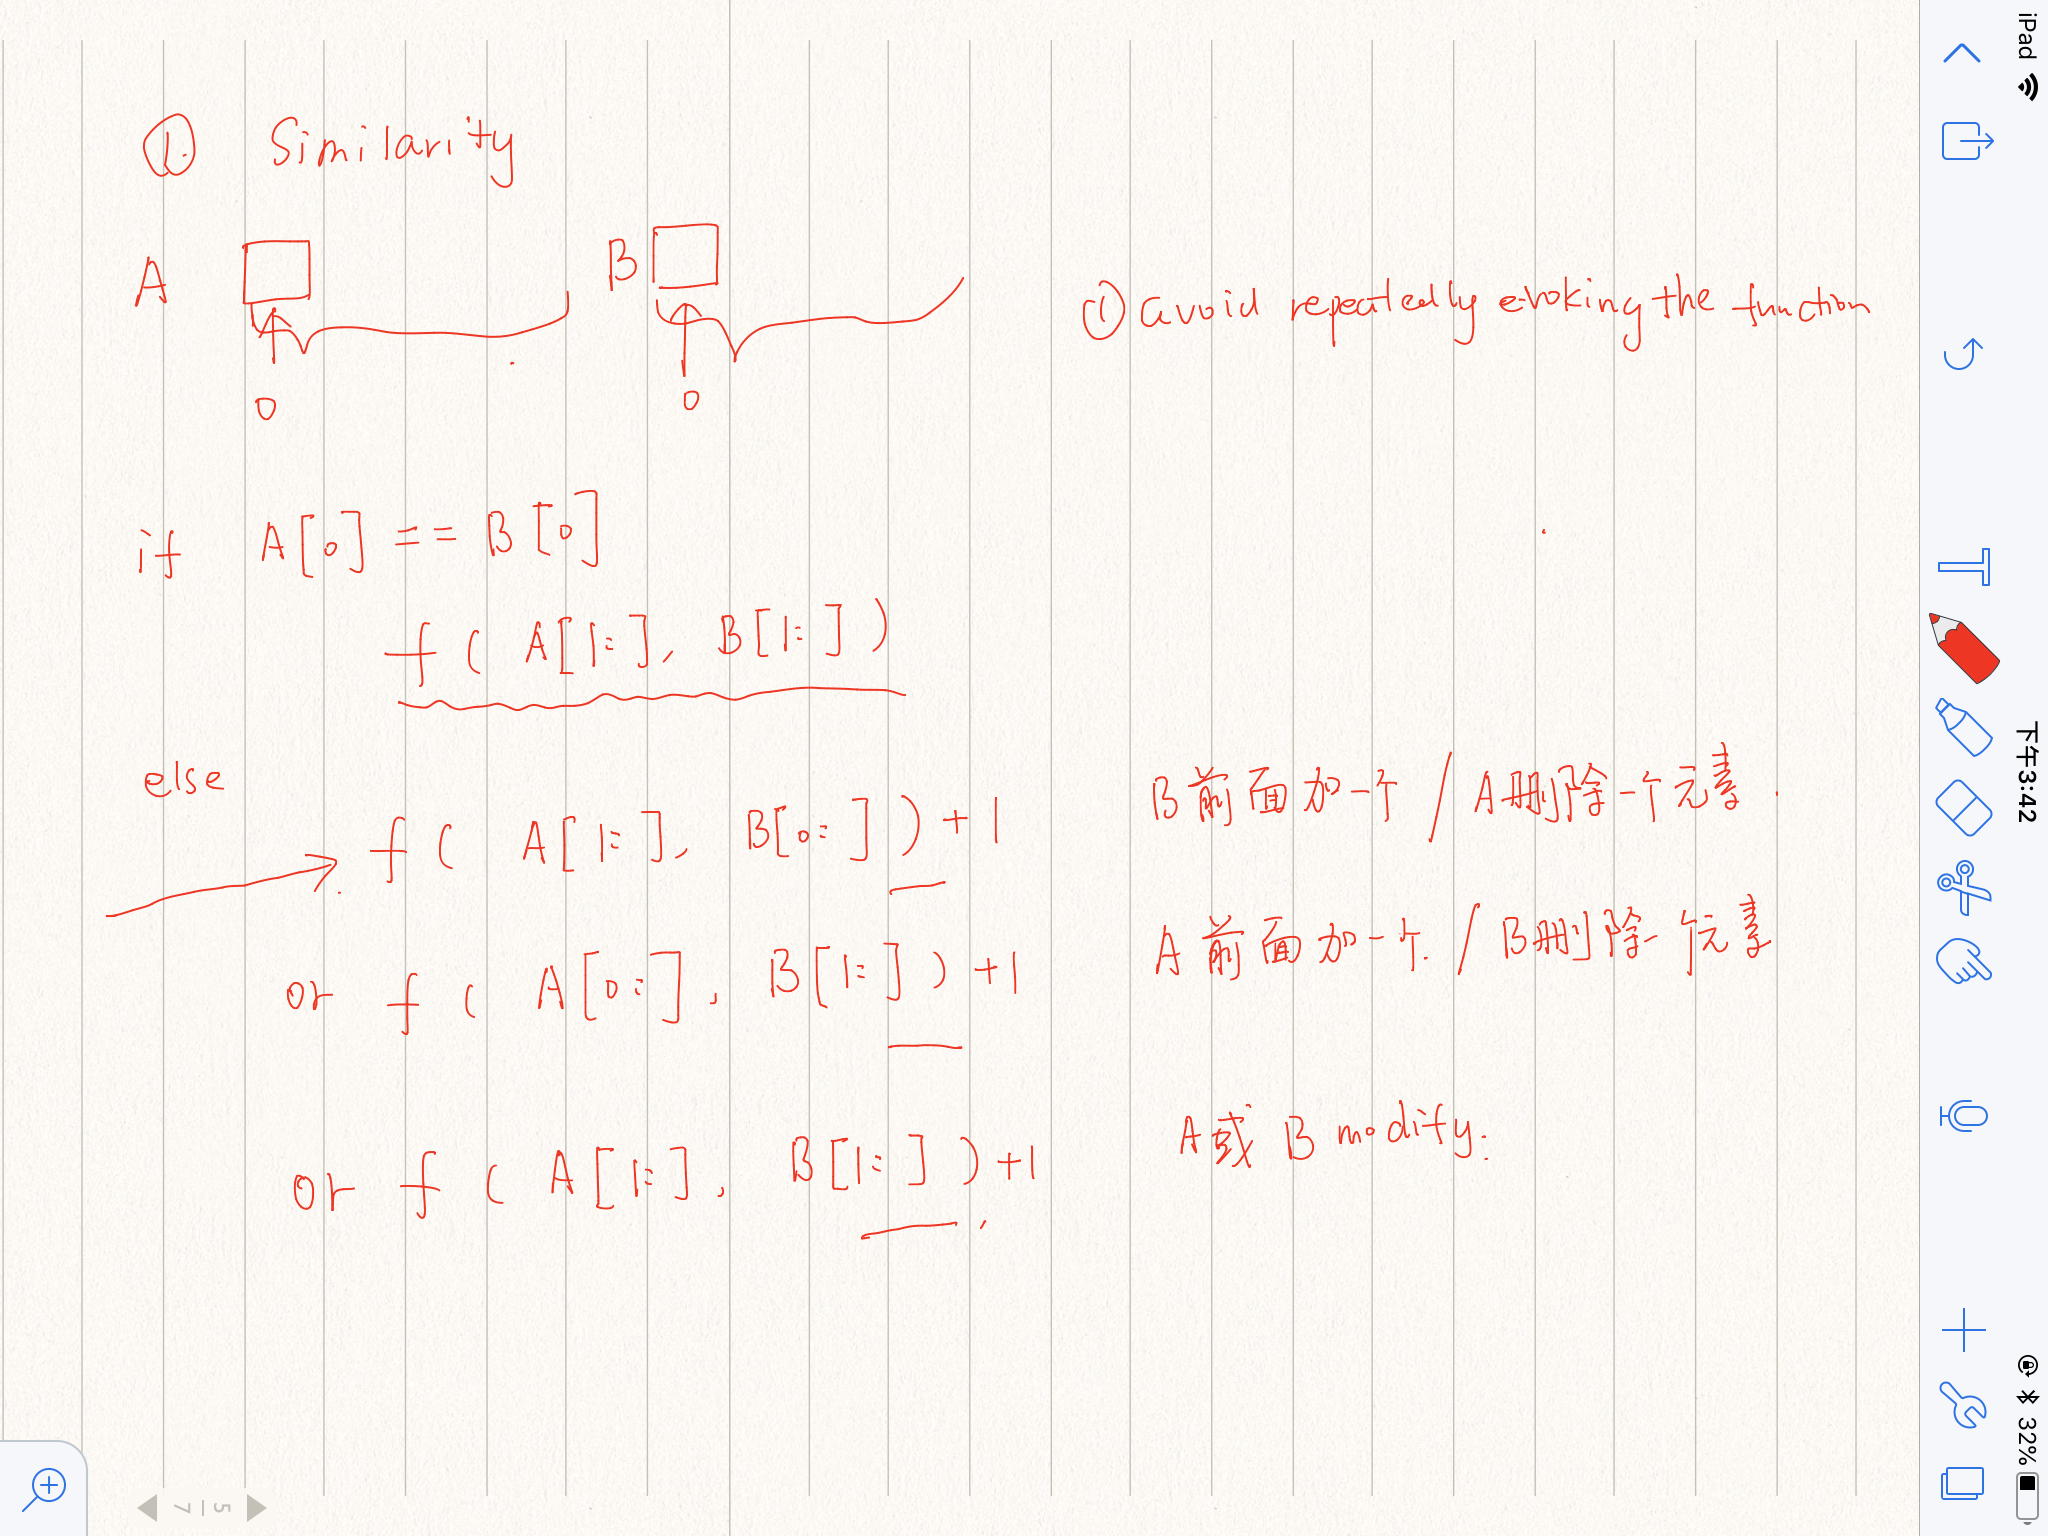 ① Similarity
A B
0 0
① avoid repeatedly evoking the function
if A[0] == B[0]
f( A[1:], B[1:] )
else
f( A[1:], B[0:] ) +1
B前面加一个 / A删除一个元素.
or f( A[0:], B[1:] ) +1
A前面加一个. / B删除一个元素
or f( A[1:], B[1:] ) +1
A或 B modify.
iPad
下午3:42
32%
5 | 7